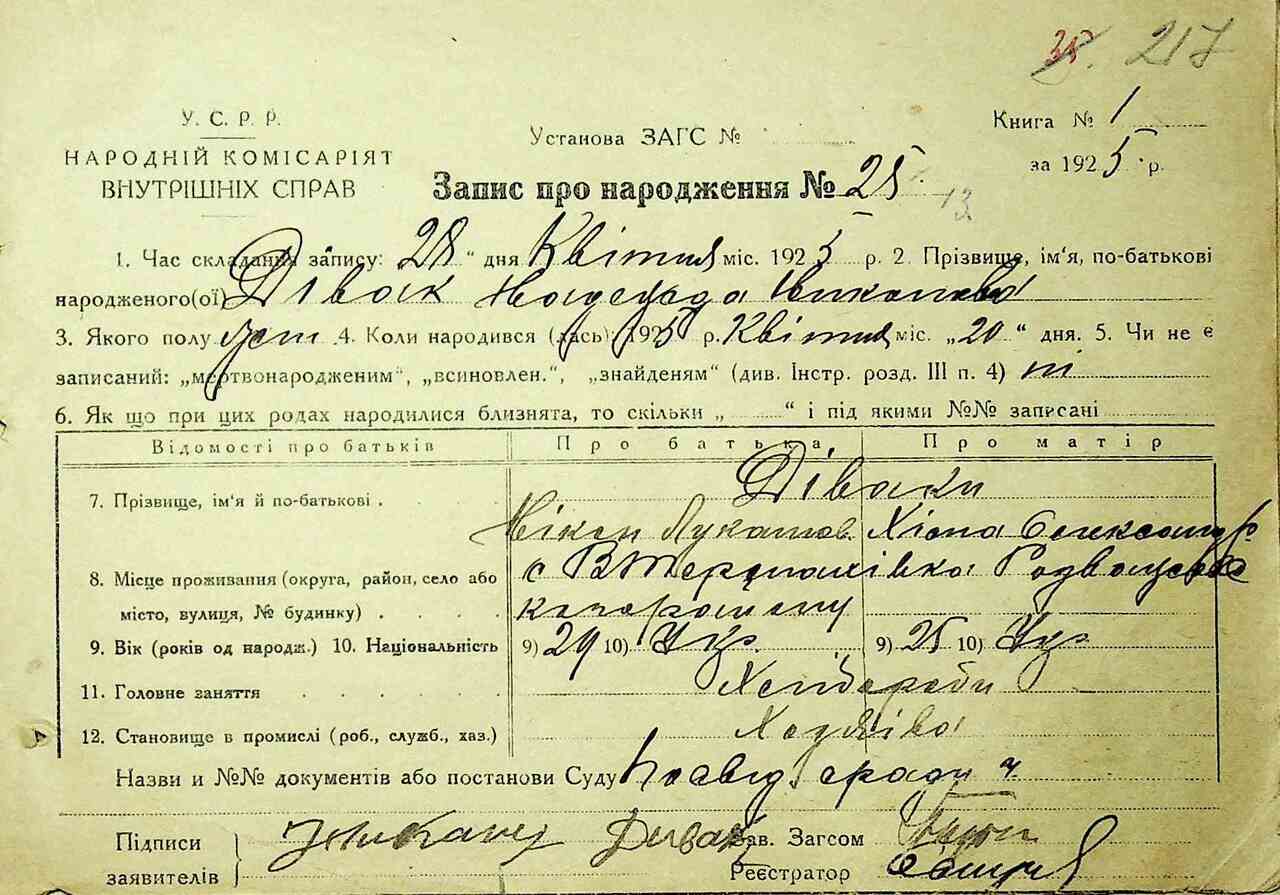 217
У. С. Р. Р.
НАРОДНІЙ КОМІСАРІЯТ
ВНУТРІШНІХ СПРАВ
Установа ЗАГС №
Книга № 1
за 1925 р.
Запис про народження № 25
13
1. Час складання запису: 28 " дня Квітня міс. 1925 р. 2. Прізвище, ім'я, по-батькові
народженого(ої) Дівак Надежда
3. Якого полу жен 4. Коли народився (лась): 1925 р. Квітня міс. „20" дня. 5. Чи не є
записаний: „мертвонародженим", „всиновлен.", „знайденям" (див. Інстр. розд. III п. 4) ні
6. Як що при цих родах народилися близнята, то скільки „ " і під якими №№ записані
Відомості про батьків Про батька Про матір
7. Прізвище, ім'я й по-батькові . Діваки
Нікон Лукашов.
8. Місце проживання (округа, район, село або с
місто, вулиця, № будинку)
9. Вік (років од народж.) 10. Національність 9) 29 10) Укр. 9) 25 10) Укр.
11. Головне заняття Хліборобн
12. Становище в промислі (роб., служб., хаз.) Хазяїва
Назви и №№ документів або постанови Суду Посвід. сради
Підписи
заявителів
Дивак
Зав. Загсом
Реєстратор